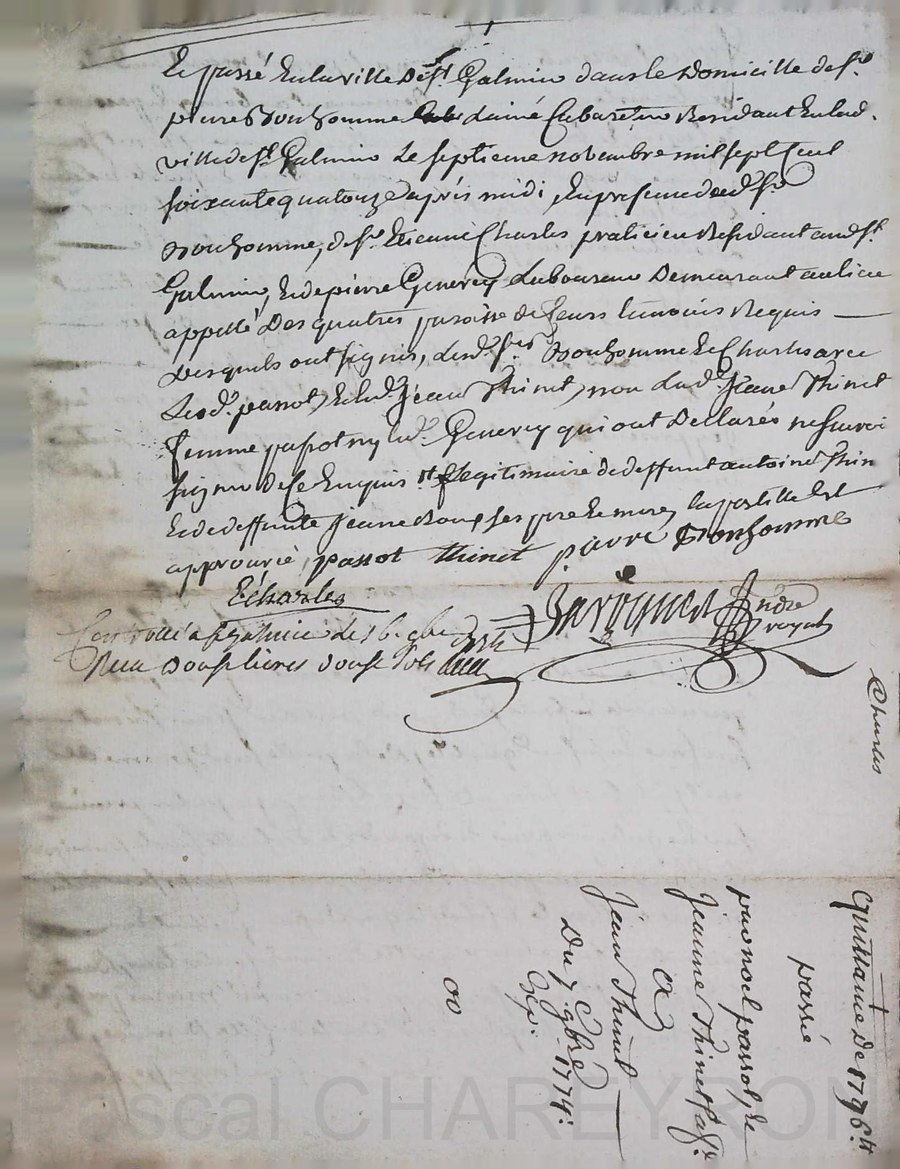 Et passé en la ville de st. Galmier dans le domicille de sr.
pierre Bonhomme l'ainé Cabaretier Residant en lad.
ville de st. Galmier le septieme novembre mil sept Cent
soixante quatorze après midi, En presence dud. sr.
Bonhomme, de sr. Etienne Charles praticien Residant aud. st.
Galmier, et de pierre Genevey Laboureur Demeurant au lieu
appellé Des quatres De Leurs temoins Requis
Lesquels ont signés, Lesd. srs. Bonhomme et Charles avec
Led. passot, et led. Jean Thinet, non Lad. Jeanne Thinet
femme passot ny led. Genevey qui ont Dellarés ne savoir
signer de ce Enquis Legitimaire de deffunt antoine Thin
et de deffunte Jeanne ses pere et mere, lapostille est
approuvée, passot thinet pierre Bonhomme
E charles
no.re royal
Controllé a st galmier le 16. 9bre 1774
Reçu Douse livres douse sols
Charles
Quittance de 1796 lt
passée
par noel passot, et
Jeanne Thinet sa fe.
a
Jean Thinet
Du 7. 9bre. 1774.
Exp.
00
Pascal CHAREYRON